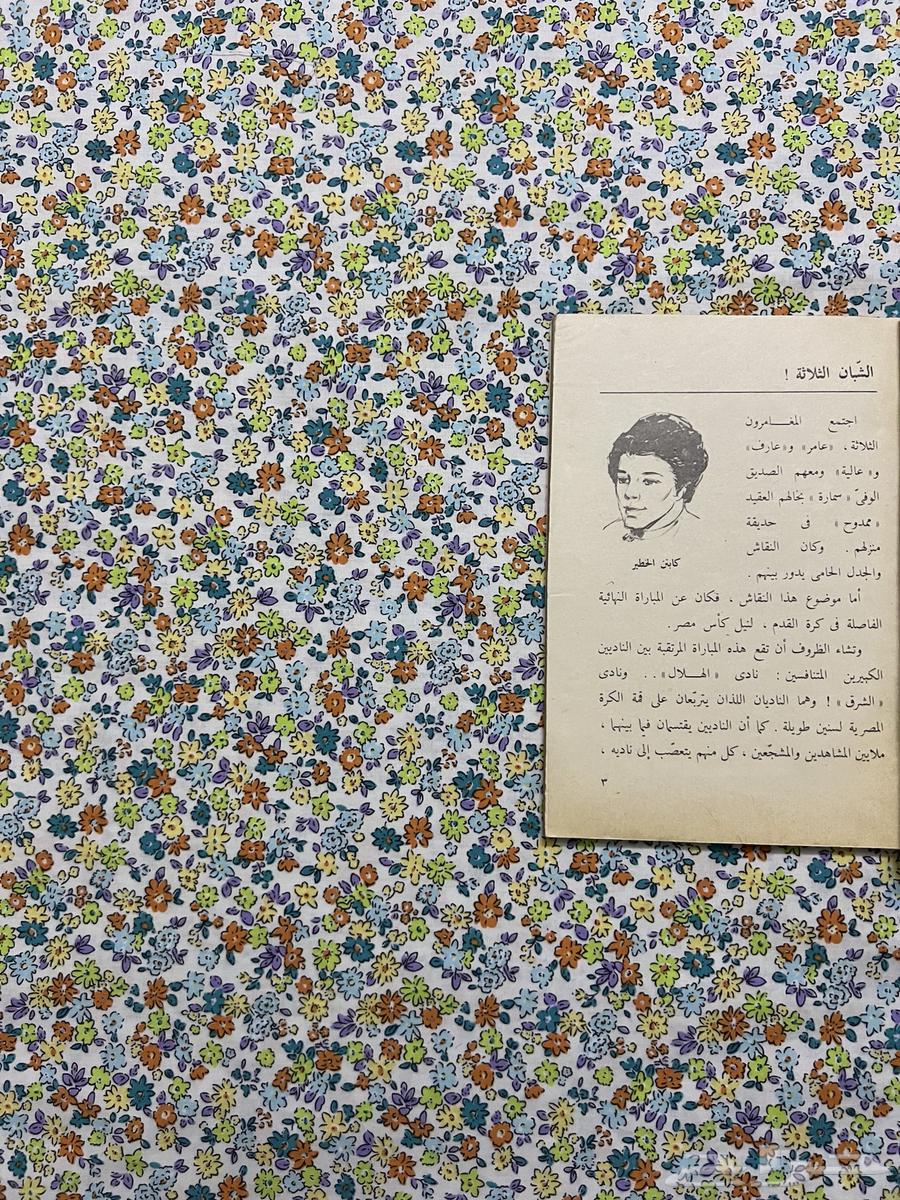 الشبّان الثلاثة !
اجتمع المغامرون
الثلاثة ، «عامر» و«عارف»
و«عالية» ومعهم الصديق
الوفىّ «سمارة» بخالهم العقيد
«ممدوح» فى حديقة
منزلهم . وكان النقاش
والجدل الحامى يدور بينهم .
كابتن الخطير
أما موضوع هذا النقاش ، فكان عن المباراة النهائية
الفاصلة فى كرة القدم ، لنيل كأس مصر .
وتشاء الظروف أن تقع هذه المباراة المرتقبة بين الناديين
الكبيرين المتنافسين : نادى «الهلال» . . ونادى
«الشرق» ! وهما الناديان اللذان يتربّعان على قمة الكرة
المصرية لسنين طويلة . كما أن الناديين يقتسمان فيما بينهما ،
ملايين المشاهدين والمشجّعين ، كل منهم يتعصّب إلى ناديه ،
٣